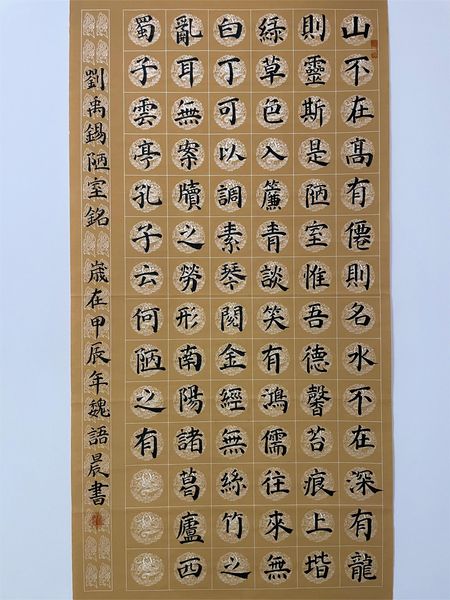 山不在髙有僊則名水不在深有龍
則靈斯是陋室惟吾德馨苔痕上堦
綠草色入簾青談笑有鴻儒往來無
白丁可以調素琴閱金經無絲竹之
亂耳無案牘之勞形南陽諸葛廬西
蜀子雲亭孔子云何陋之有
劉禹錫陋室銘 歲在甲辰年魏語晨書